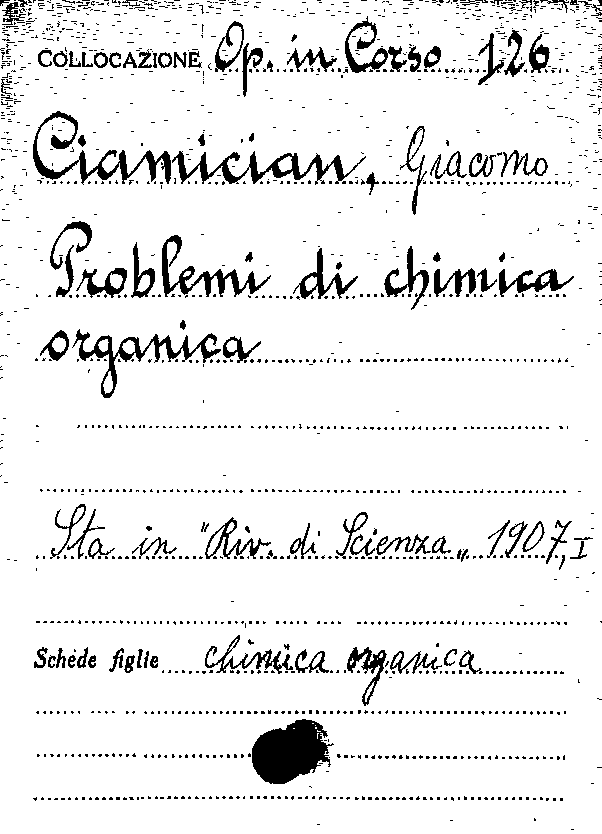 COLLOCAZIONE Op. in Corso 126
Ciamician, Giacomo
Problemi di chimica
organica
Sta in "Riv. di Scienza„ 1907, I
Schede figlie chimica organica